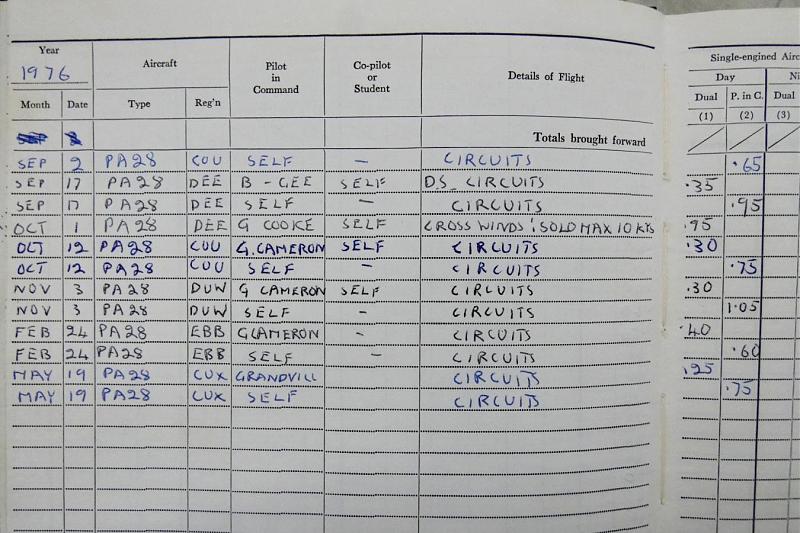 Year
1976
Aircraft
Pilot in Command
Co-pilot or Student
Details of Flight
Single-engined Airc
Day
Ni
Month Date Type Reg'n
Dual P. in C. Dual
(1) (2) (3)
Totals brought forward
SEP 2 PA28 COU SELF — CIRCUITS .65
SEP 17 PA28 DEE B-GEE SELF D.S. CIRCUITS .35
SEP 17 PA28 DEE SELF — CIRCUITS .95
OCT 1 PA28 DEE G COOKE SELF CROSS WINDS ; SOLD MAX 10 KTS .95
OCT 12 PA28 COU G. CAMERON SELF CIRCUITS .30
OCT 12 PA28 COU SELF — CIRCUITS .75
NOV 3 PA28 DUW G CAMERON SELF CIRCUITS .30
NOV 3 PA28 DUW SELF - CIRCUITS 1.05
FEB 24 PA28 EBB G CAMERON - CIRCUITS .40
FEB 24 PA28 EBB SELF — CIRCUITS .60
MAY 19 PA28 CUX GRANDVILL CIRCUITS .25
MAY 19 PA28 CUX SELF CIRCUITS .75